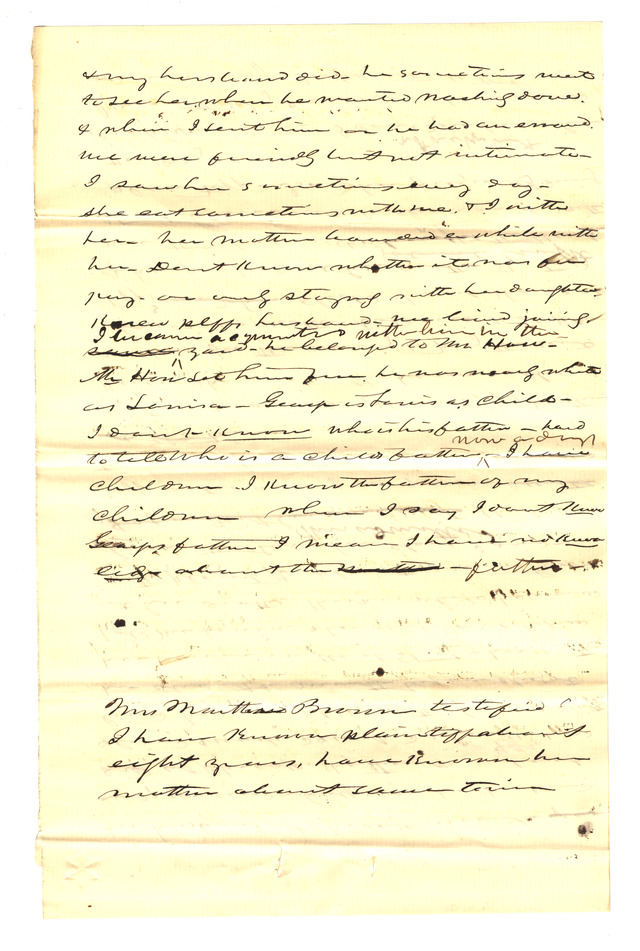 & my husband did - he sometimes went
to see her, when he wanted washing done.
& when I sent him or he had an errand.
we were friendly but not intimate -
I saw her sometimes every day -
she eat sometimes with me. & I with
her - her mother boarded a while with
her - Dont Know whether it was for
pay - or only staying with her daughter.
Knew pltffs husband - we lived joining
I became acquainted with him in the
same yard - he belonged to Mr How -
Mr How set him free. he was nearly white
as Louisa - George is Louisas child -
I dont Know who is his father - hard
to tell who is a childs father, now a days - I have
children - I Know the father of my
children when I say I dont Know
Georges father I mean I have no Know
ledge about the father -
Mrs Martha Brown testified
I have Known plaintiff about
eight years, have Known her
mother about same time